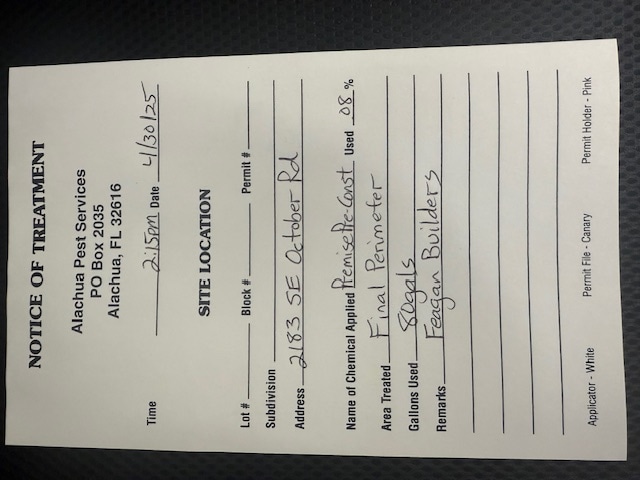 NOTICE OF TREATMENT
Alachua Pest Services
PO Box 2035
Alachua, FL 32616
Time 2:15pm Date 4/30/25
SITE LOCATION
Lot # Block # Permit #
Subdivision
Address 2183 SE October Rd
Name of Chemical Applied Premise Pre-Const Used .08 %
Area Treated Final Perimeter
Gallons Used 80gals
Remarks Feagan Builders
Applicator - White Permit File - Canary Permit Holder - Pink